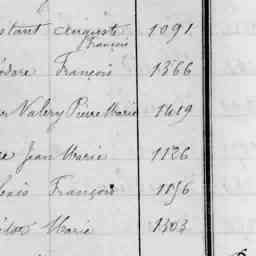 stant Auguste 1091
François
odore François 1366
Valery Pierre Marie 1419
Jean Marie 1126
François 1156
Marie 1303